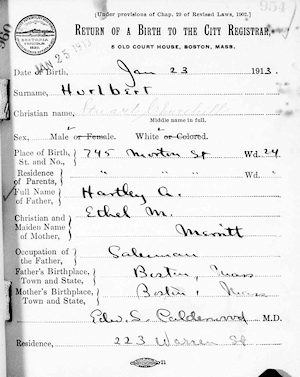 950
954
[Under provisions of Chap. 29 of Revised Laws, 1902.]
RETURN OF A BIRTH TO THE CITY REGISTRAR,
BOSTONIA
5 OLD COURT HOUSE, BOSTON, MASS.
JAN 25 1913
Date of Birth, Jan 23 1913.
Surname, Hurlbert
Christian name, Stuart
Middle name in full.
Sex, Male or Female. White or Colored.
Place of Birth, St. and No., 745 Morton St Wd. 24
Residence of Parents, " " " Wd. "
Full Name of Father, Hartley A.
Christian and Maiden Name of Mother, Ethel M.
Merritt
Occupation of the Father, Salesman
Father's Birthplace, Town and State, Boston, Mass
Mother's Birthplace, Town and State, Boston, Mass
Edw. S. Calderwood M.D.
Residence, 223 Warren St
21